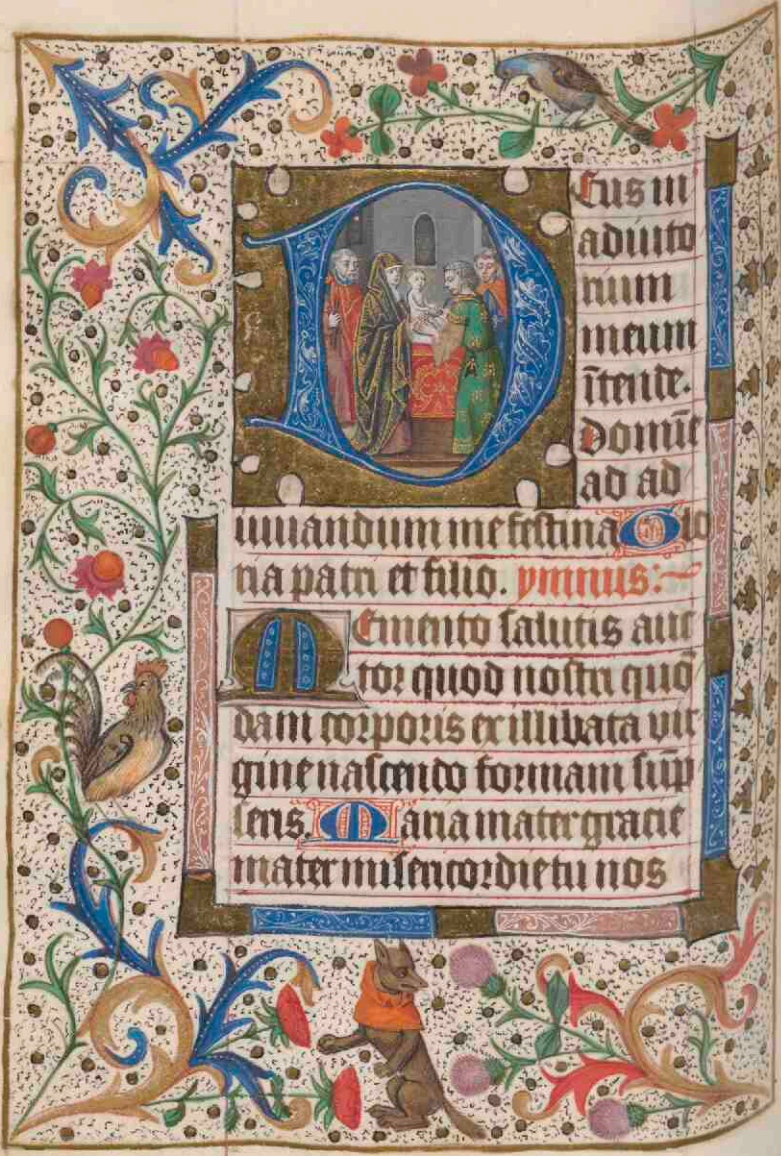 Deus in
adiuto
rium
meum
ītende.
Domīe
ad ad
iuuandum me festina Glo
ria patri et filio. ymnus:~
Memento salutis auc
tor quod nostri quō
dam corporis ex illibata vir
gine nascendo formam sūp
seris. Maria mater gracie
mater misericordie tu nos